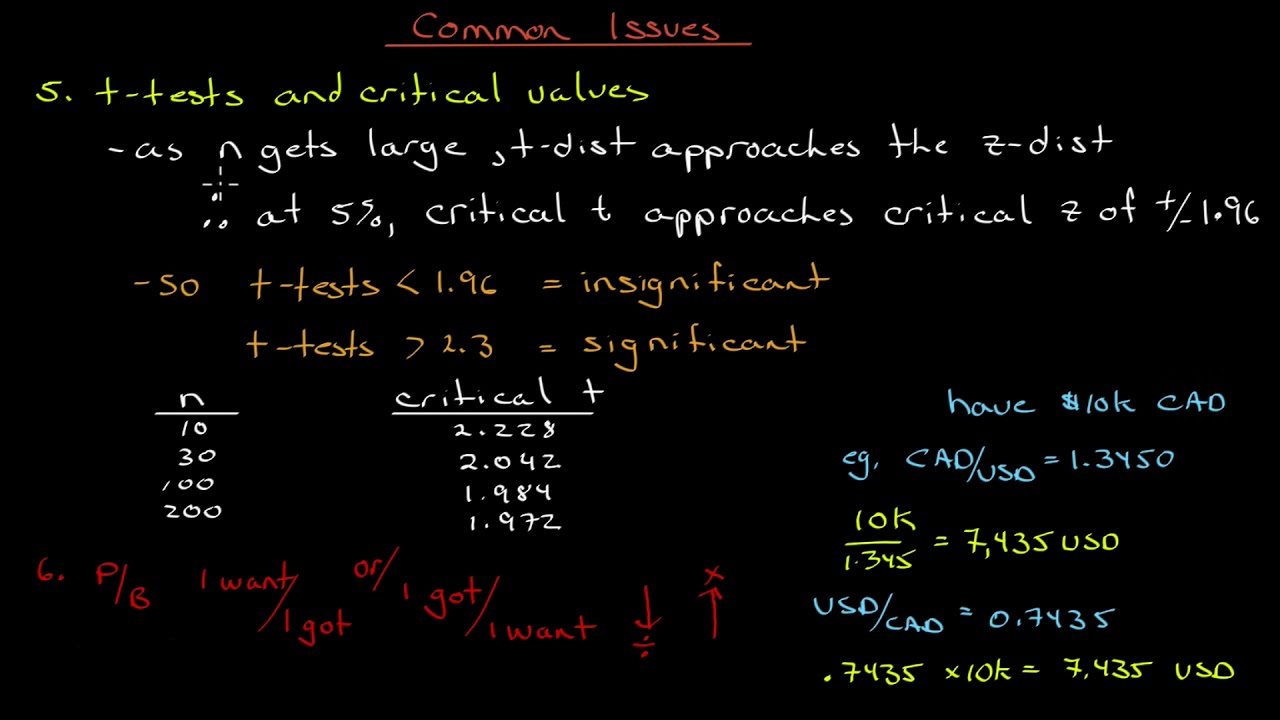 Common Issues
5. t-tests and critical values
- as n gets large, t-dist approaches the z-dist
∴ at 5%, critical t approaches critical z of +/- 1.96
- so t-tests < 1.96 = insignificant
t-tests > 2.3 = significant
n critical t
10 2.228
30 2.042
100 1.984
200 1.972
6. P/B 1 want/1 got or/ 1 got/1 want ÷ x
have $10k CAD
eg. CAD/USD = 1.3450
10k/1.345 = 7,435 USD
USD/CAD = 0.7435
.7435 x 10k = 7,435 USD